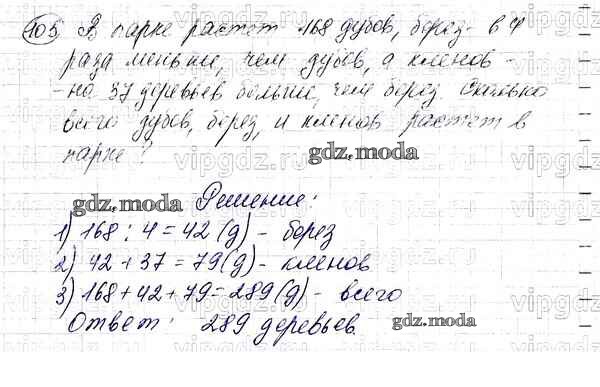 105 В парке растет 168 дубов, берез - в 4
раза меньше, чем дубов, а кленов -
- на 37 деревьев больше, чем берез. Сколько
всего дубов, берез, и кленов растет в
парке?
gdz.moda
gdz.moda Решение:
1) 168 : 4 = 42 (д) - берез
2) 42 + 37 = 79 (д) - кленов
3) 168 + 42 + 79 = 289 (д) - всего
Ответ: 289 деревьев
gdz.moda
vipgdz.ru